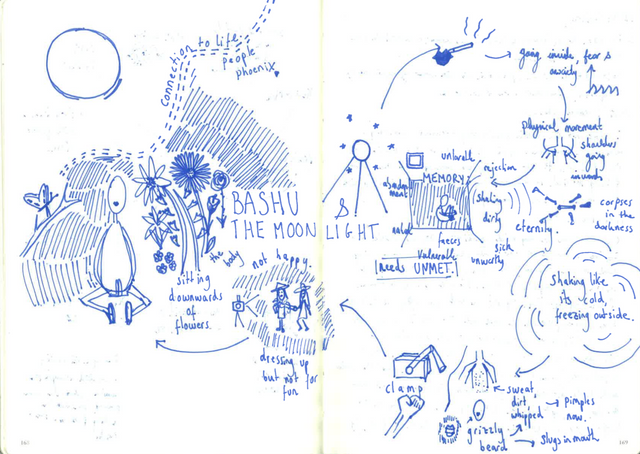 connection to life,
people
phoenix
BASHU
& 
THE MOON LIGHT
the body
sitting
downwards
of
flowers.
not happy.
dressing up
but not for
fun
going inside, fear &
anxiety
physical movement
shoulders
going
inwards
unlovable
rejection
abandonment
MEMORY:
(shaking)
dirty
faeces
vulnerable
sick
unworthy
NEEDS UNMET.
eternity.
corpses
in the
darkness
shaking like
its cold,
freezing outside.
clamp
sweat
dirt,
whipped
pimples
now.
grizzly
beard
slugs in mouth